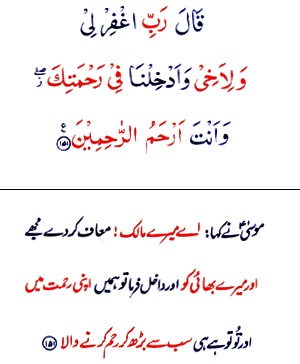 قَالَ رَبِّ اغْفِرْ لِیْ
وَ لِاَخِیْ وَ اَدْخِلْنَا فِیْ رَحْمَتِكَ ۖ ز
وَ اَنْتَ اَرْحَمُ الرّٰحِمِیْنَ ﴿۱۵۱﴾ ع
موسیٰؑ نے کہا: اے میرے مالک! معاف کر دے مجھے
اور میرے بھائی کو اور داخل فرما تو ہمیں اپنی رحمت میں
اور تُو تو ہے ہی سب سے بڑھ کر رحم کرنے والا ﴿۱۵۱﴾